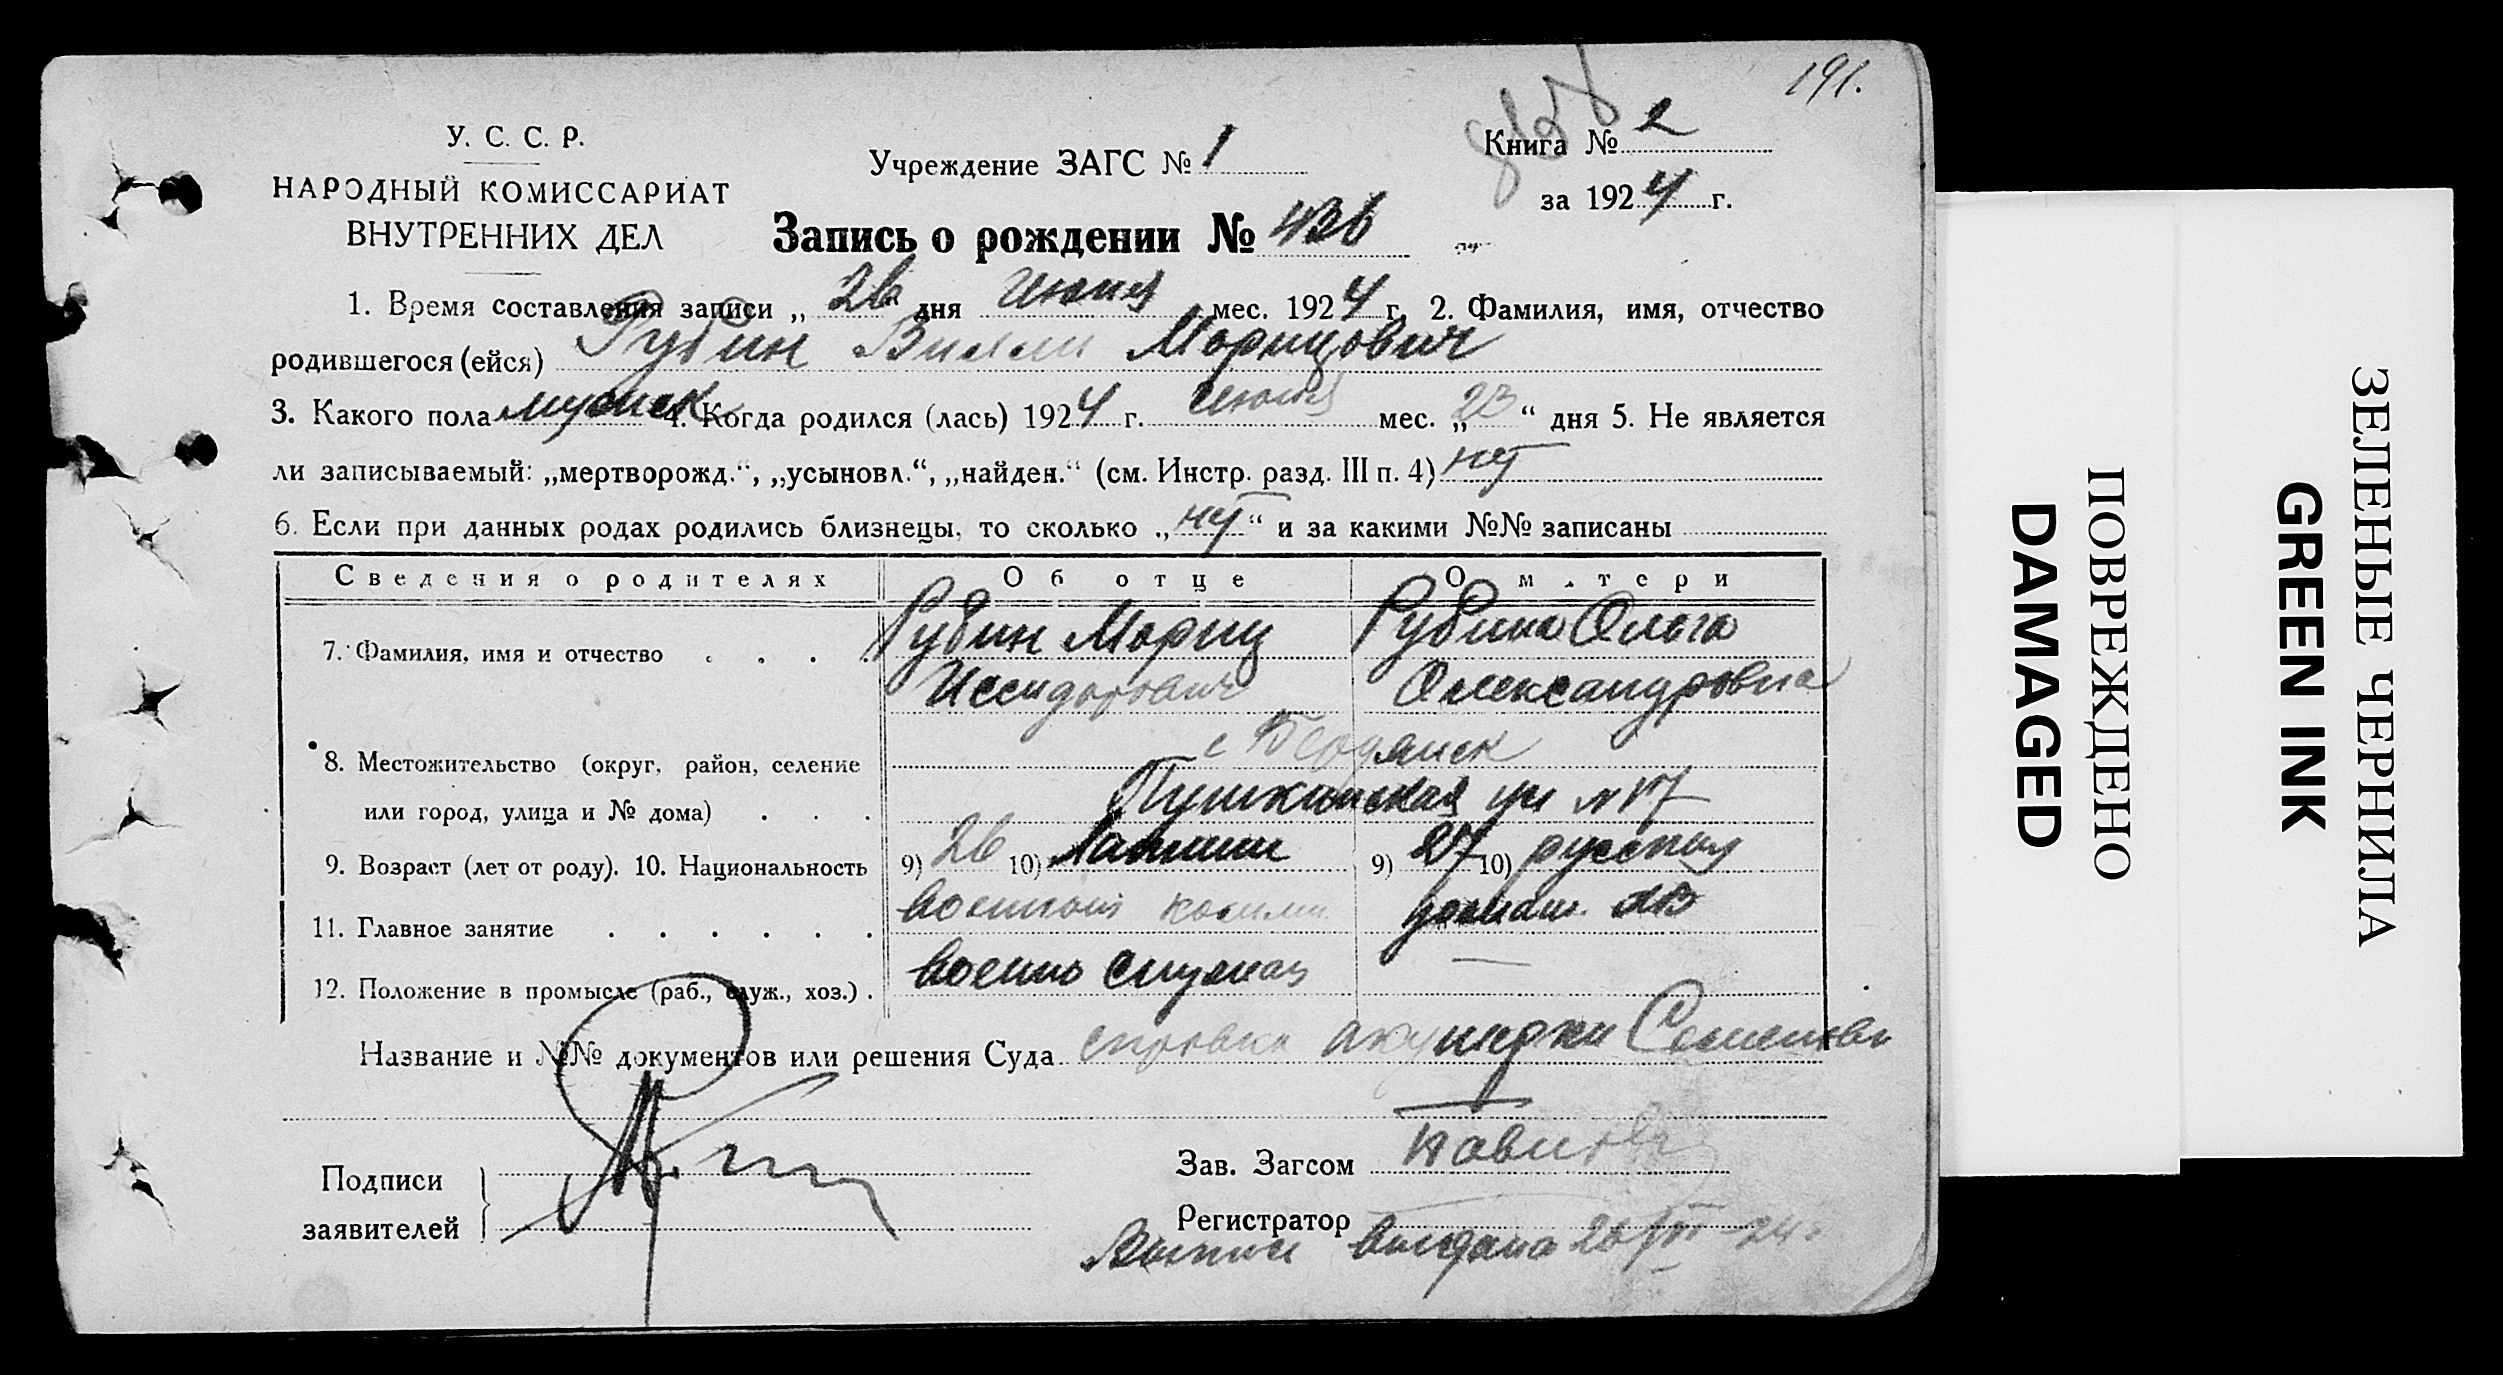 191.
У. С. С. Р.
НАРОДНЫЙ КОМИССАРИАТ
ВНУТРЕННИХ ДЕЛ
Учреждение ЗАГС № 1
Книга № 2
за 1924 г.
Запись о рождении № 436
1. Время составления записи „ 26 “ дня июня мес. 1924 г. 2. Фамилия, имя, отчество
родившегося (ейся) Рубин Вилли Морицович
3. Какого пола мужск 4. Когда родился (лась) 1924 г. июня мес. „ 23 “ дня 5. Не является
ли записываемый: „мертворожд.“, „усыновл.“, „найден.“ (см. Инстр. разд. III п. 4) нет
6. Если при данных родах родились близнецы, то сколько „ нет “ и за какими №№ записаны
Сведения о родителях Об отце О матери
7. Фамилия, имя и отчество . . . . Рубин Мориц Рубина Ольга
Иссидорович Олександровна
8. Местожительство (округ, район, селение г Бердянск
или город, улица и № дома) . . . Пушкинская ул № 17
9. Возраст (лет от роду). 10. Национальность 9) 26 10) 9) 27 10) русская
11. Главное занятие . . . . . . домаш.
12. Положение в промысле (раб., служ., хоз.) . военно служащ —
Название и №№ документов или решения Суда справка акушерки
Подписи
заявителей
Зав. Загсом
Регистратор
Выпись выдана 26/VI-24
ПОВРЕЖДЕНО
DAMAGED
ЗЕЛЕНЫЕ ЧЕРНИЛА
GREEN INK